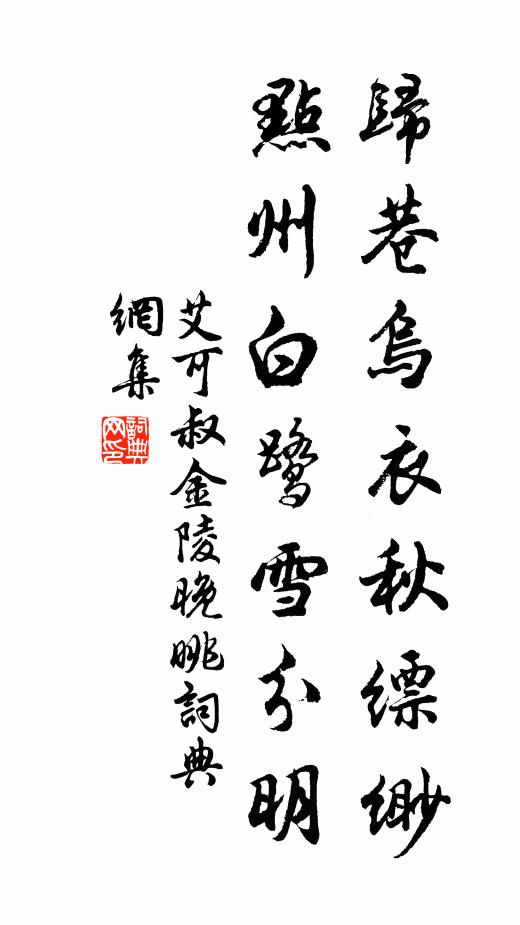 歸巷烏衣秋縹緲
點州白鷺雪分明
艾可叔金陵晚眺詞典
網集
詞典
网印